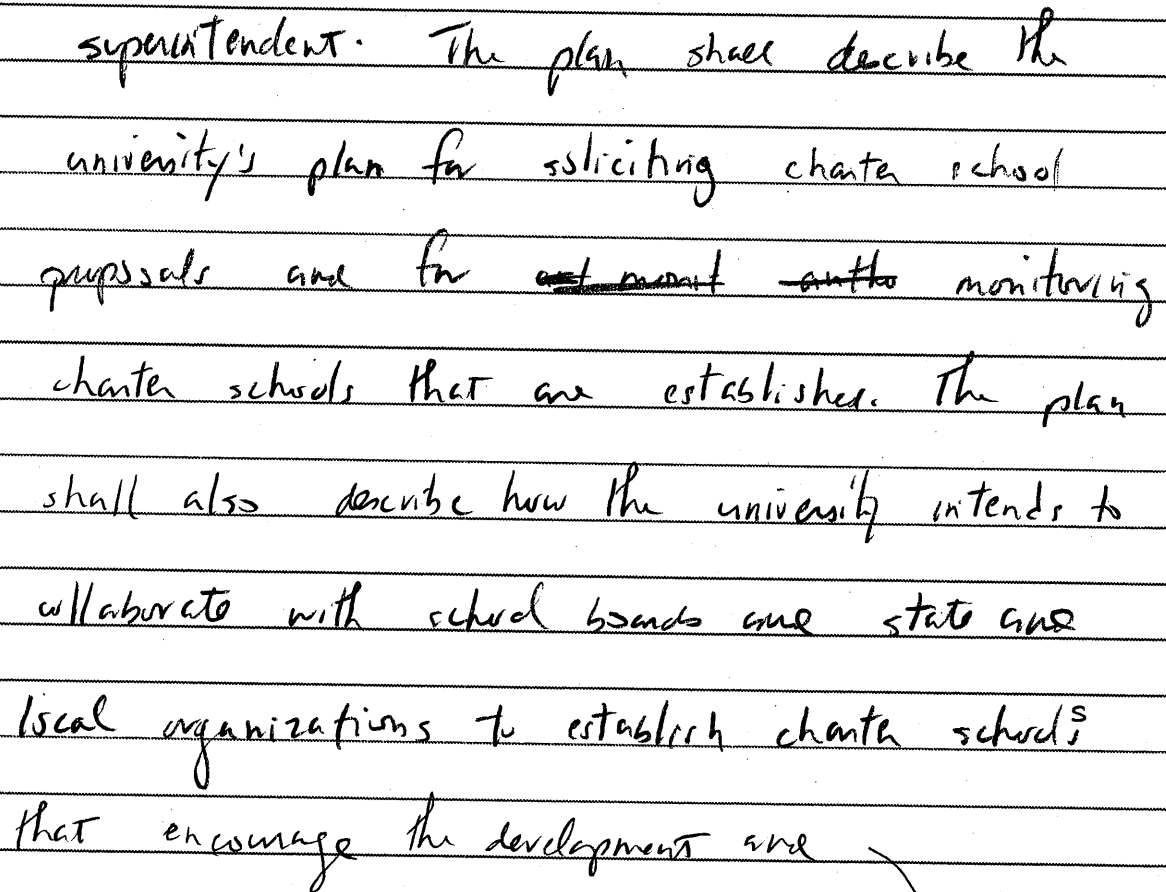 superintendent. The plan shall describe the
university's plan for soliciting charter school
proposals and for monitoring
charter schools that are established. The plan
shall also describe how the university intends to
collaborate with school boards and state and
local organizations to establish charter schools
that encourage the development and